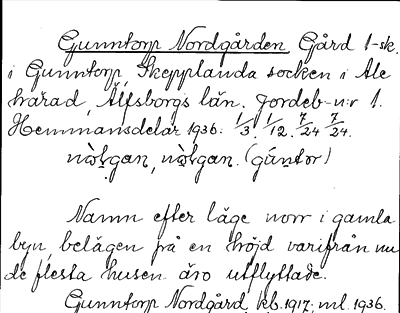 Gunntorp Nordgården Gård 1-sk.
i Gunntorp, Skepplanda socken i Ale
härad, Älfsborgs län. Jordeb-n:r 1.
Hemmansdelar 1936: 1/3. 1/12. 7/24 7/24.
nòlgan, nòlgan. (gúntor)
Namn efter läge norr i gamla
byn, belägen på en höjd varifrån nu
de flesta husen äro utflyttade.
Gunntorp Nordgård kb. 1917; ml. 1936.